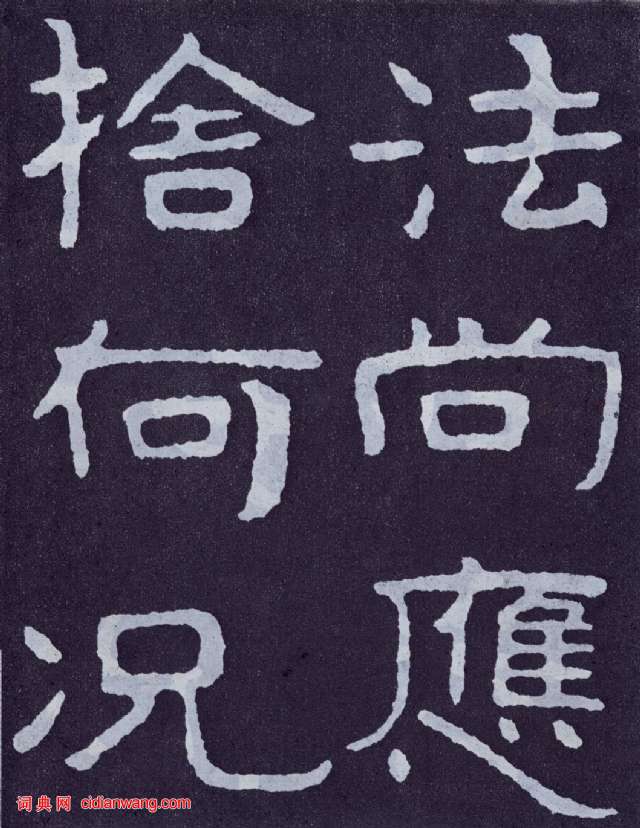 法尚應
捨何況
词典网 cidianwang.com